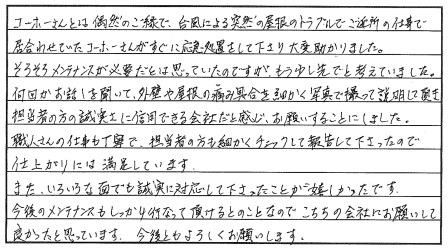 コーホーさんとは偶然のご縁で、台風による突然の屋根のトラブルでご近所の仕事で
居合わせていたコーホーさんがすぐに応急処置をして下さり大変助かりました。
そろそろメンテナンスが必要だとは思っていたのですが、もう少し先でと考えていました。
何回かお話しを聞いて、外壁や屋根の痛み具合を細かく写真で撮って説明して頂き
担当者の方の誠実さに信用できる会社だと感じ、お願いすることにしました。
職人さんの仕事も丁寧で、担当者の方も細かくチェックして報告して下さったので
仕上がりには満足しています。
また、いろいろな面でも誠実に対応して下さったことが嬉しかったです。
今後のメンテナンスもしっかり行なって頂けるとのことなのでこちらの会社にお願いして
良かったと思っています。今後ともよろしくお願いします。